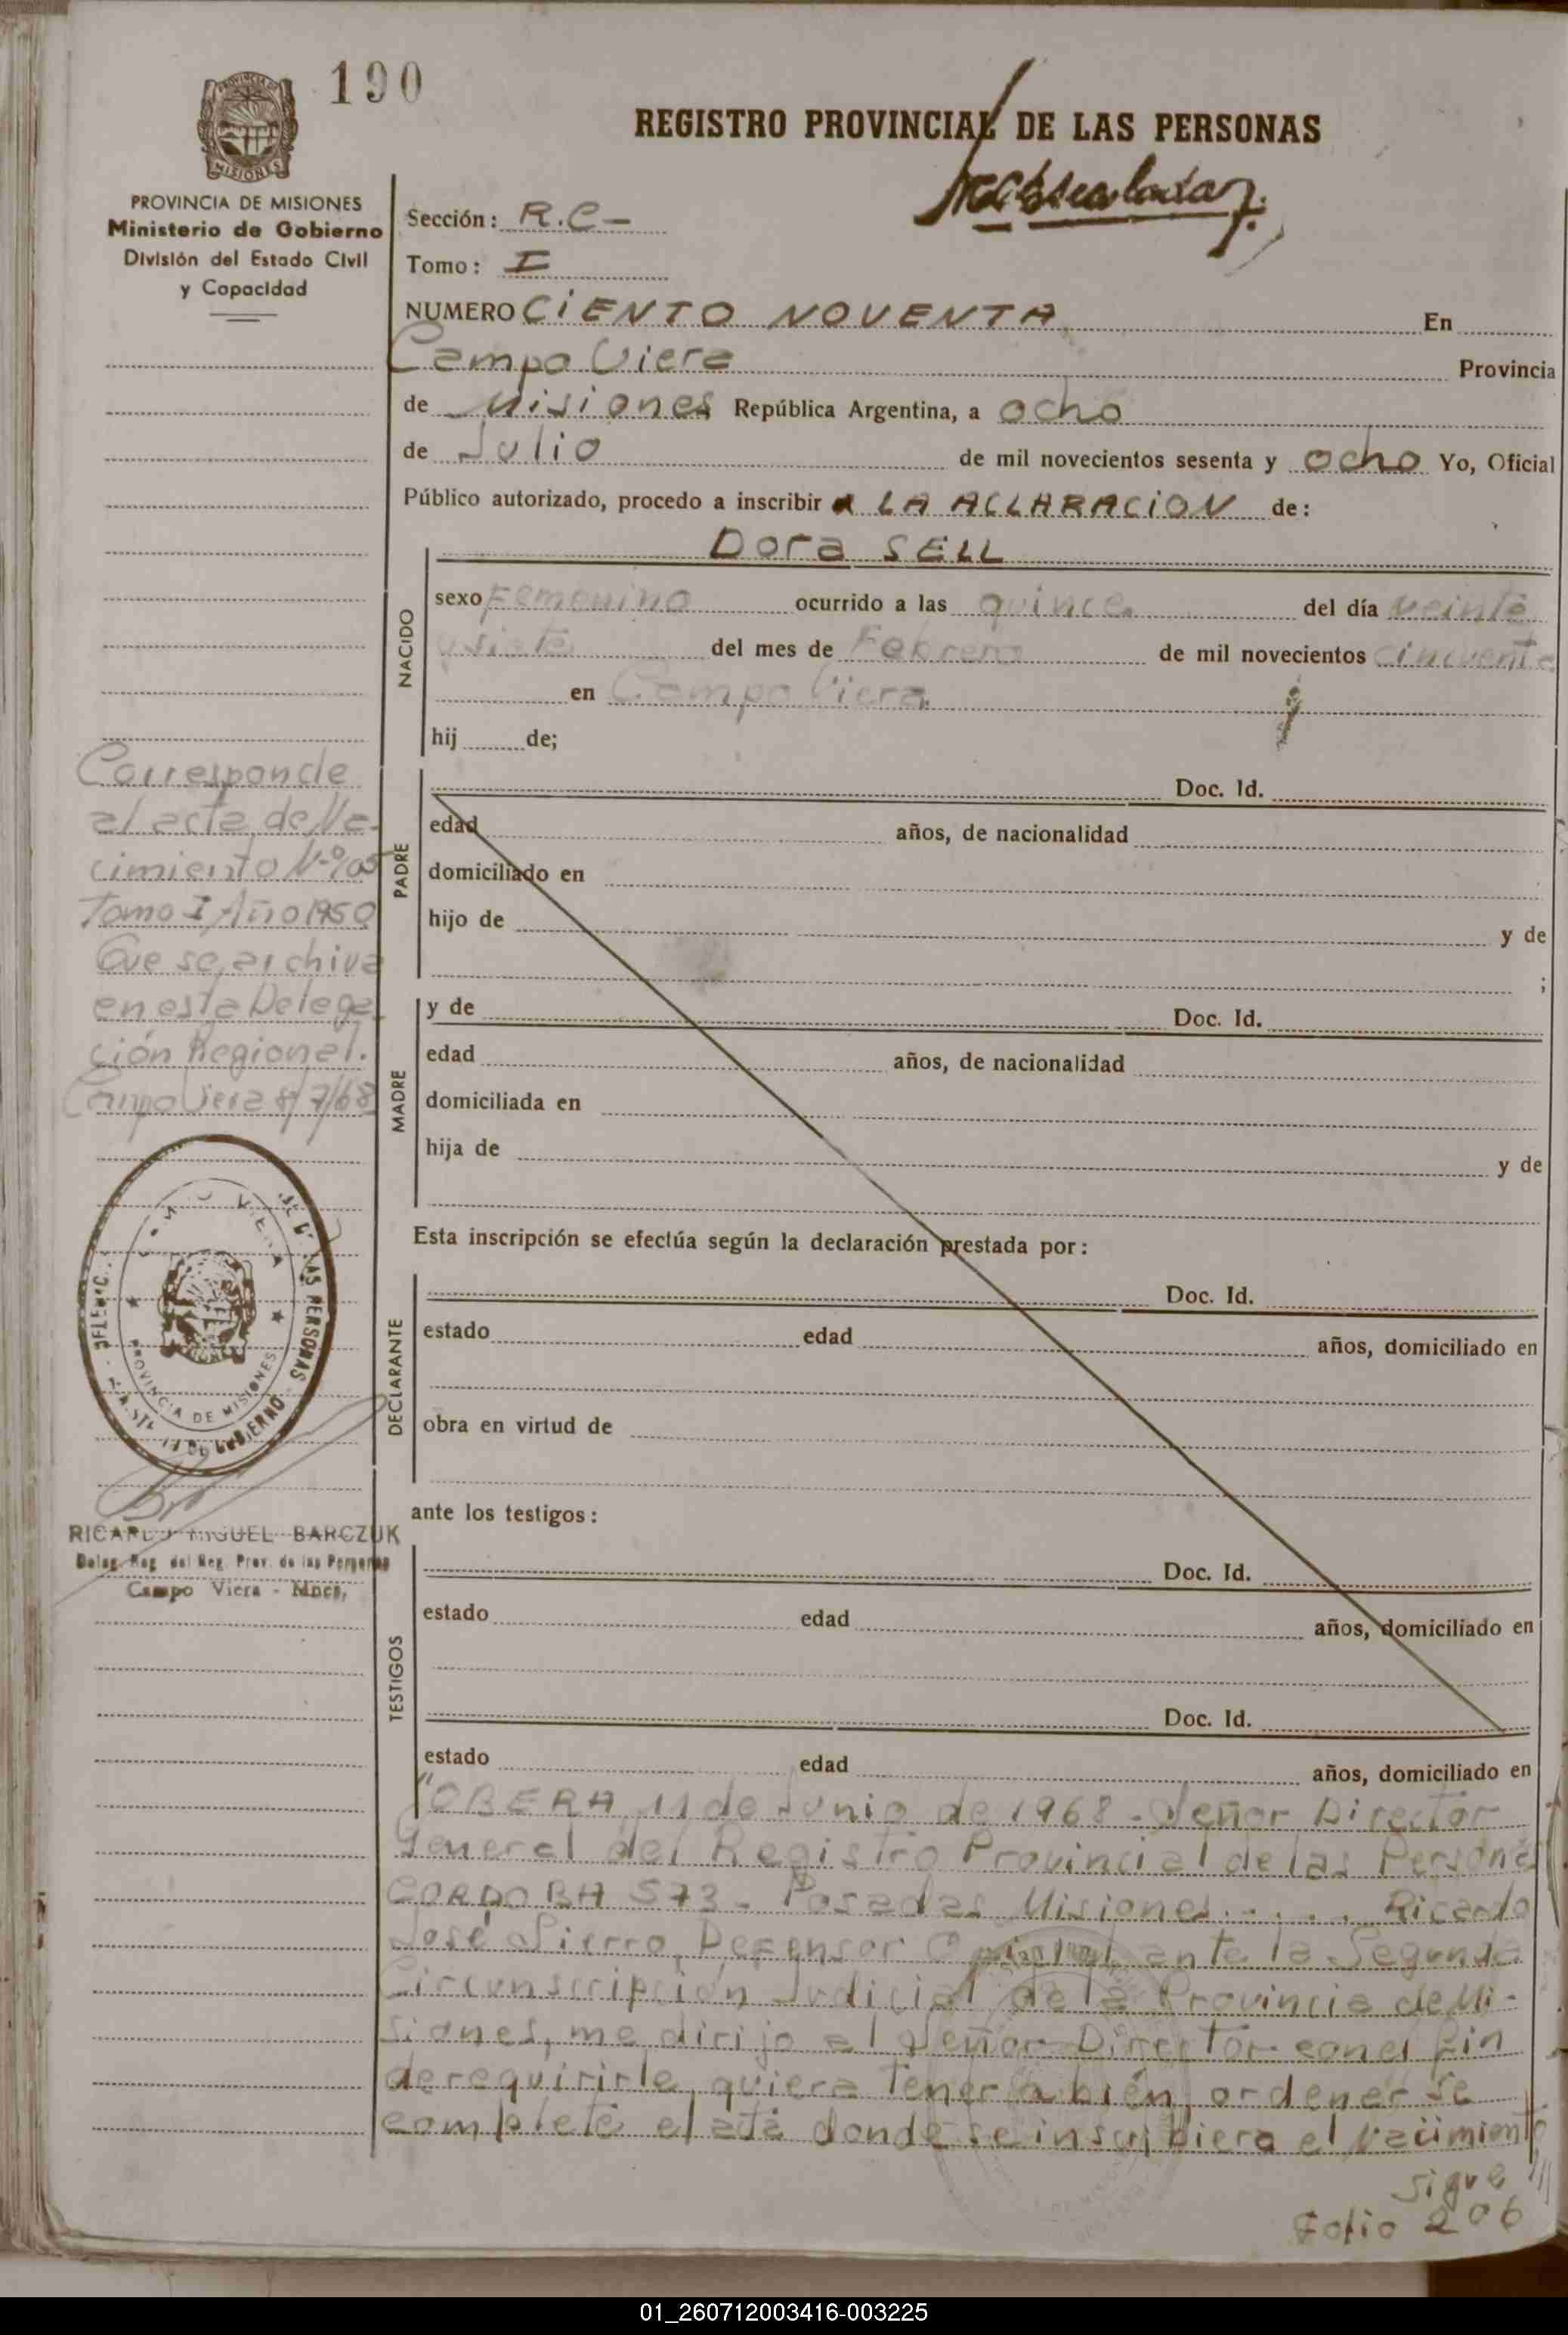 190
PROVINCIA DE
MISIONES
REGISTRO PROVINCIAL DE LAS PERSONAS
PROVINCIA DE MISIONES
Ministerio de Gobierno
División del Estado Civil
y Capacidad
Sección: R.C-
Tomo: I
NUMERO CiENTO NOVENTA En
Campo Viera Provincia
de Misiones República Argentina, a ocho
de Julio de mil novecientos sesenta y ocho Yo, Oficial
Público autorizado, procedo a inscribir a LA ACLARACiON de:
Dora SELL
NACIDO
sexo Femenino ocurrido a las quince del día veinte
y siete del mes de Febrero de mil novecientos cincuenta
en Campo Viera
hij de;
Corresponde
al acta de Na-
cimiento Nº
Tomo I Año 1950
Que se archiva
en esta Delega
ción Regional.
Campo Viera 8/7/68
PADRE
Doc. Id.
edad años, de nacionalidad
domiciliado en
hijo de y de
;
MADRE
y de Doc. Id.
edad años, de nacionalidad
domiciliada en
hija de y de
Esta inscripción se efectúa según la declaración prestada por:
DECLARANTE
Doc. Id.
estado edad años, domiciliado en
obra en virtud de
LAS PERSONAS
PROVINCIA DE MISIONES
RICARDO MIGUEL BARCZUK
Deleg. Reg. del Reg. Prov. de las Personas
Campo Viera - Mnes.
ante los testigos:
TESTIGOS
Doc. Id.
estado edad años, domiciliado en
Doc. Id.
estado edad años, domiciliado en
"OBERA 11 de Junio de 1968 - Señor Director
General del Registro Provincial de las Persona
CORDOBA 573 - Posadas Misiones..... Ricardo
José Sierro, Defensor Oficial ante la Segunda
Circunscripción Judicial de la Provincia de Mi-
siones, me dirijo al Señor Director con el fin
de requirirle quiera tener a bién ordener se
complete el acta donde se inscribiera el Nacimiento
sigue ///
Folio 206
01_260712003416-003225